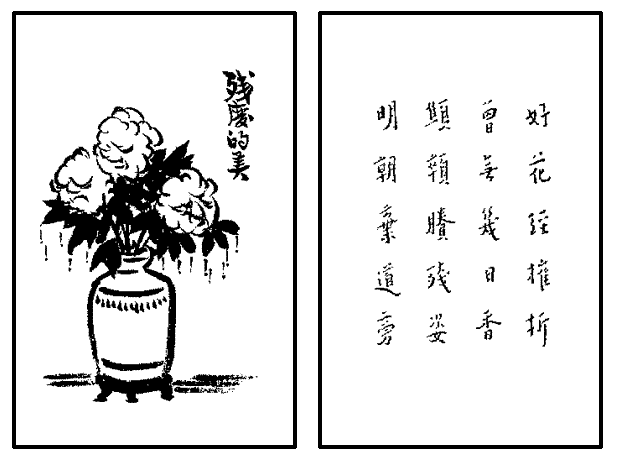 殘廢的美
好花經摧折
曾無幾日香
顦顇賸殘姿
明朝棄道旁